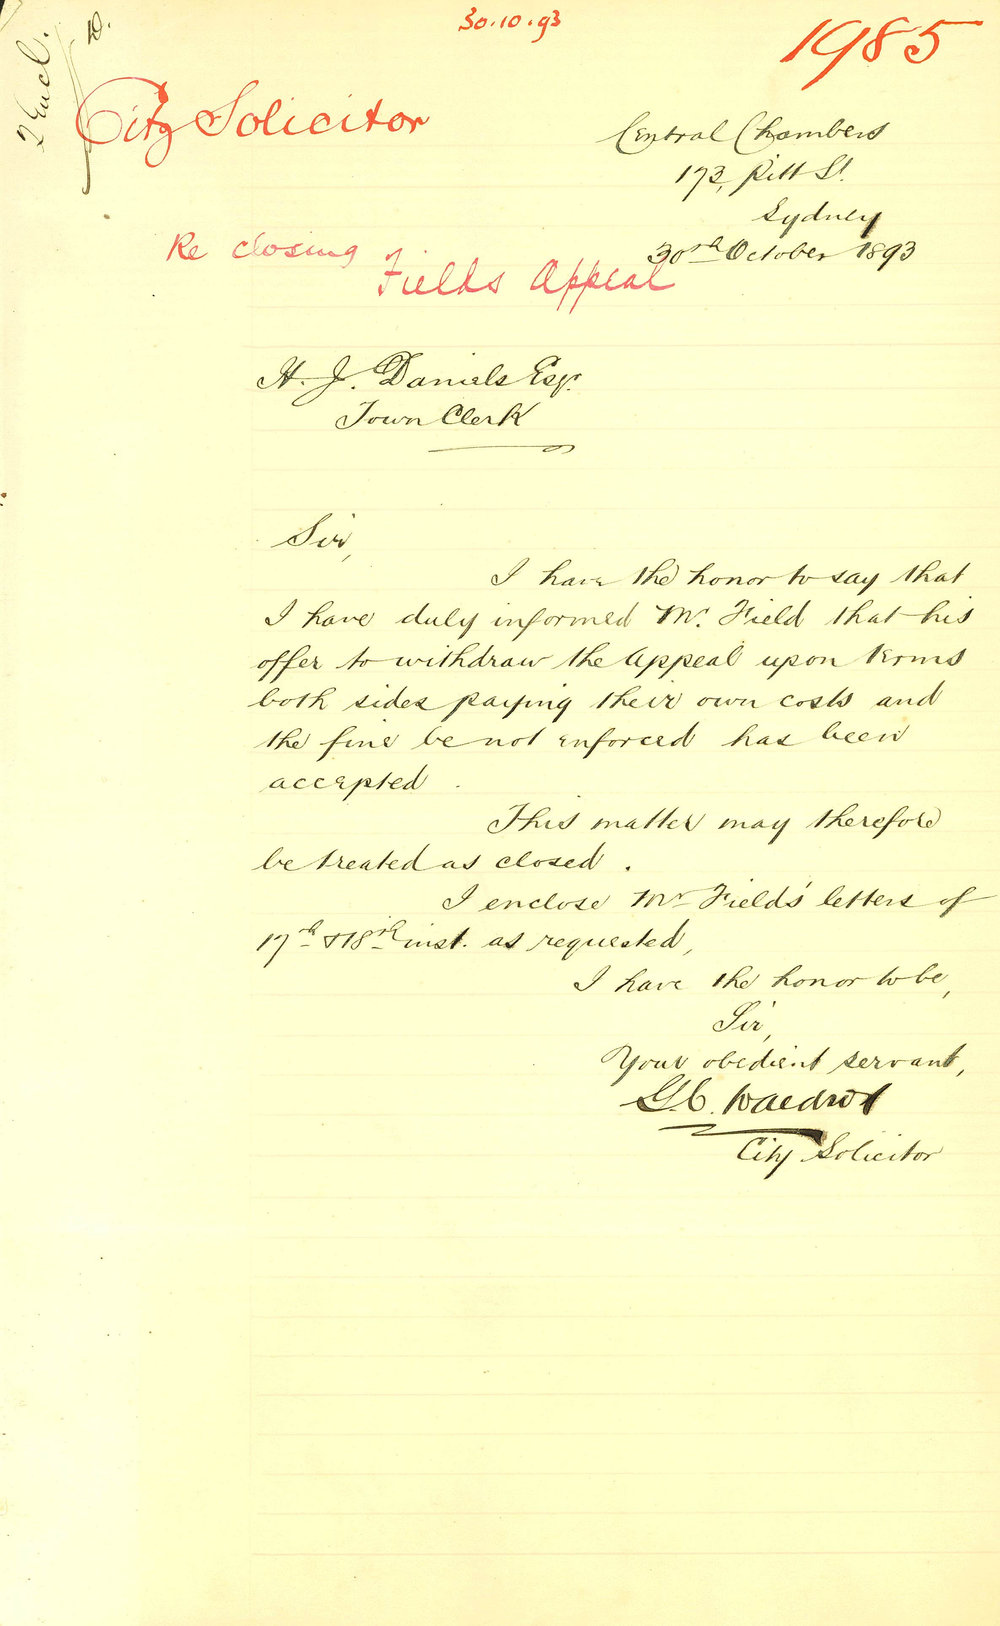 30.10.93
1985
2 Encl.
City Solicitor
Central Chambers
173, Pitt St.
Sydney
30th October 1893
Re closing
Fields Appeal
H. J. Daniels Esqr.
Town Clerk
Sir,
I have the honor to say that
I have duly informed Mr. Field that his
offer to withdraw the Appeal upon terms
both sides paying their own costs and
the fine be not enforced has been
accepted.
This matter may therefore
be treated as closed.
I enclose Mr Fields' letters of
17th & 18th inst. as requested,
I have the honor to be,
Sir,
Your obedient servant,
G.C.
City Solicitor